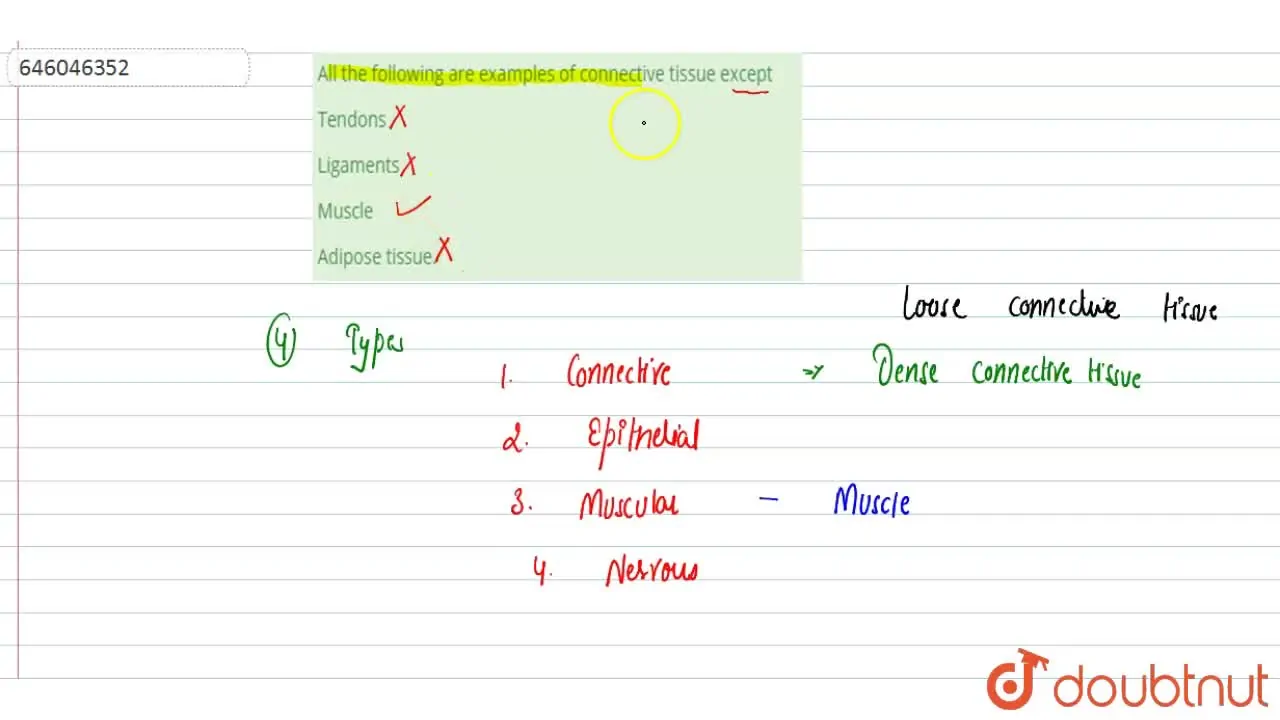 646046352
All the following are examples of connective tissue except
Tendons X
Ligaments X
Muscle ✓
Adipose tissue X
Loose connective tissue
4 Types
1. Connective => Dense connective tissue
2. Epithelial
3. Muscular - Muscle
4. Nervous
doubtnut